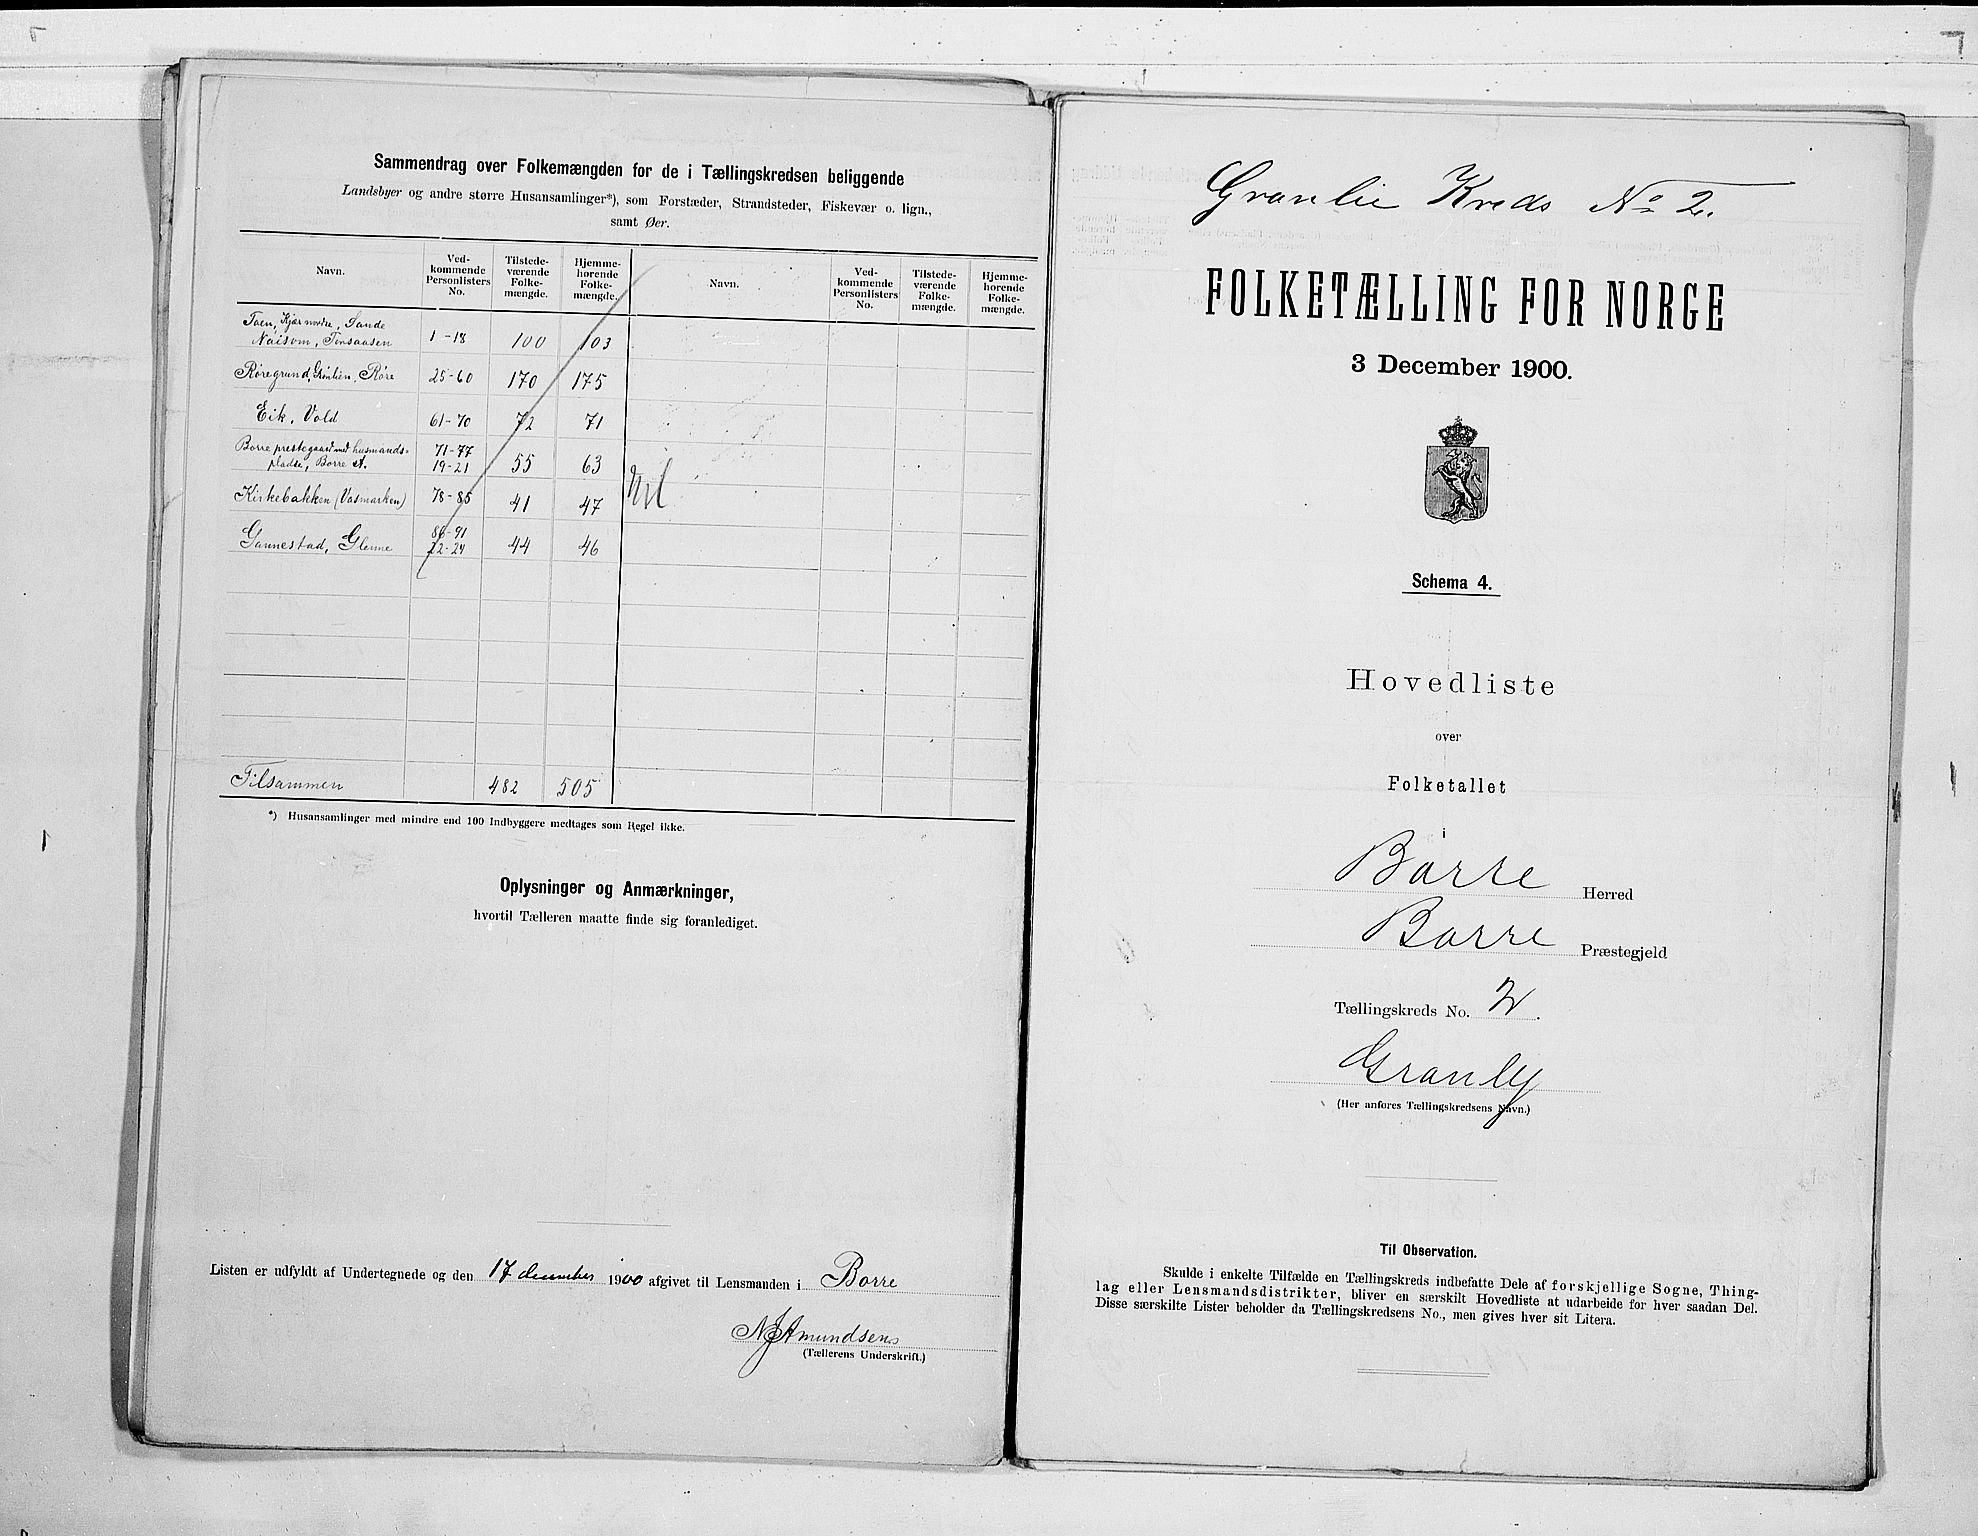 Sammendrag over Folkemængden for de i Tællingskredsen beliggende
Landsbyer og andre større Husansamlinger*), som Forstæder, Strandsteder, Fiskevær o. lign.,
samt Øer.
Navn. Ved-kommende Personlisters No. Tilstede-værende Folke-mængde. Hjemme-hørende Folke-mængde. Navn. Ved-kommende Personlisters No. Tilstede-værende Folke-mængde. Hjemme-hørende Folke-mængde.
Kjær nordre, Sande
1-18 100 103
Røregrund, Røre 25-60 170 175
Eik, Vold 61-70 72 71
Borre prestegaard med husmands- 71-77
pladse, Borre st. 19-21 55 63
Nil
Kirkebakken (Vasmarken) 78-85 41 47
Gannestad, Glenne 86-91 22-24 44 46
Tilsammen 482 505
*) Husansamlinger med mindre end 100 Indbyggere medtages som Regel ikke.
Oplysninger og Anmærkninger,
hvortil Tælleren maatte finde sig foranlediget.
Listen er udfyldt af Undertegnede og den 17 december 1900 afgivet til Lensmanden i Borre
N J Amundsen
(Tællerens Underskrift.)
Granlie Kreds No 2.
FOLKETÆLLING FOR NORGE
3 December 1900.
Schema 4.
Hovedliste
over
Folketallet
i
Borre Herred
Borre Præstegjeld
Tællingskreds No. 2.
Granly
(Her anføres Tællingskredsens Navn.)
Til Observation.
Skulde i enkelte Tilfælde en Tællingskreds indbefatte Dele af forskjellige Sogne, Thing-
lag eller Lensmandsdistrikter, bliver en særskilt Hovedliste at udarbeide for hver saadan Del.
Disse særskilte Lister beholder da Tællingskredsens No., men gives hver sit Litera.